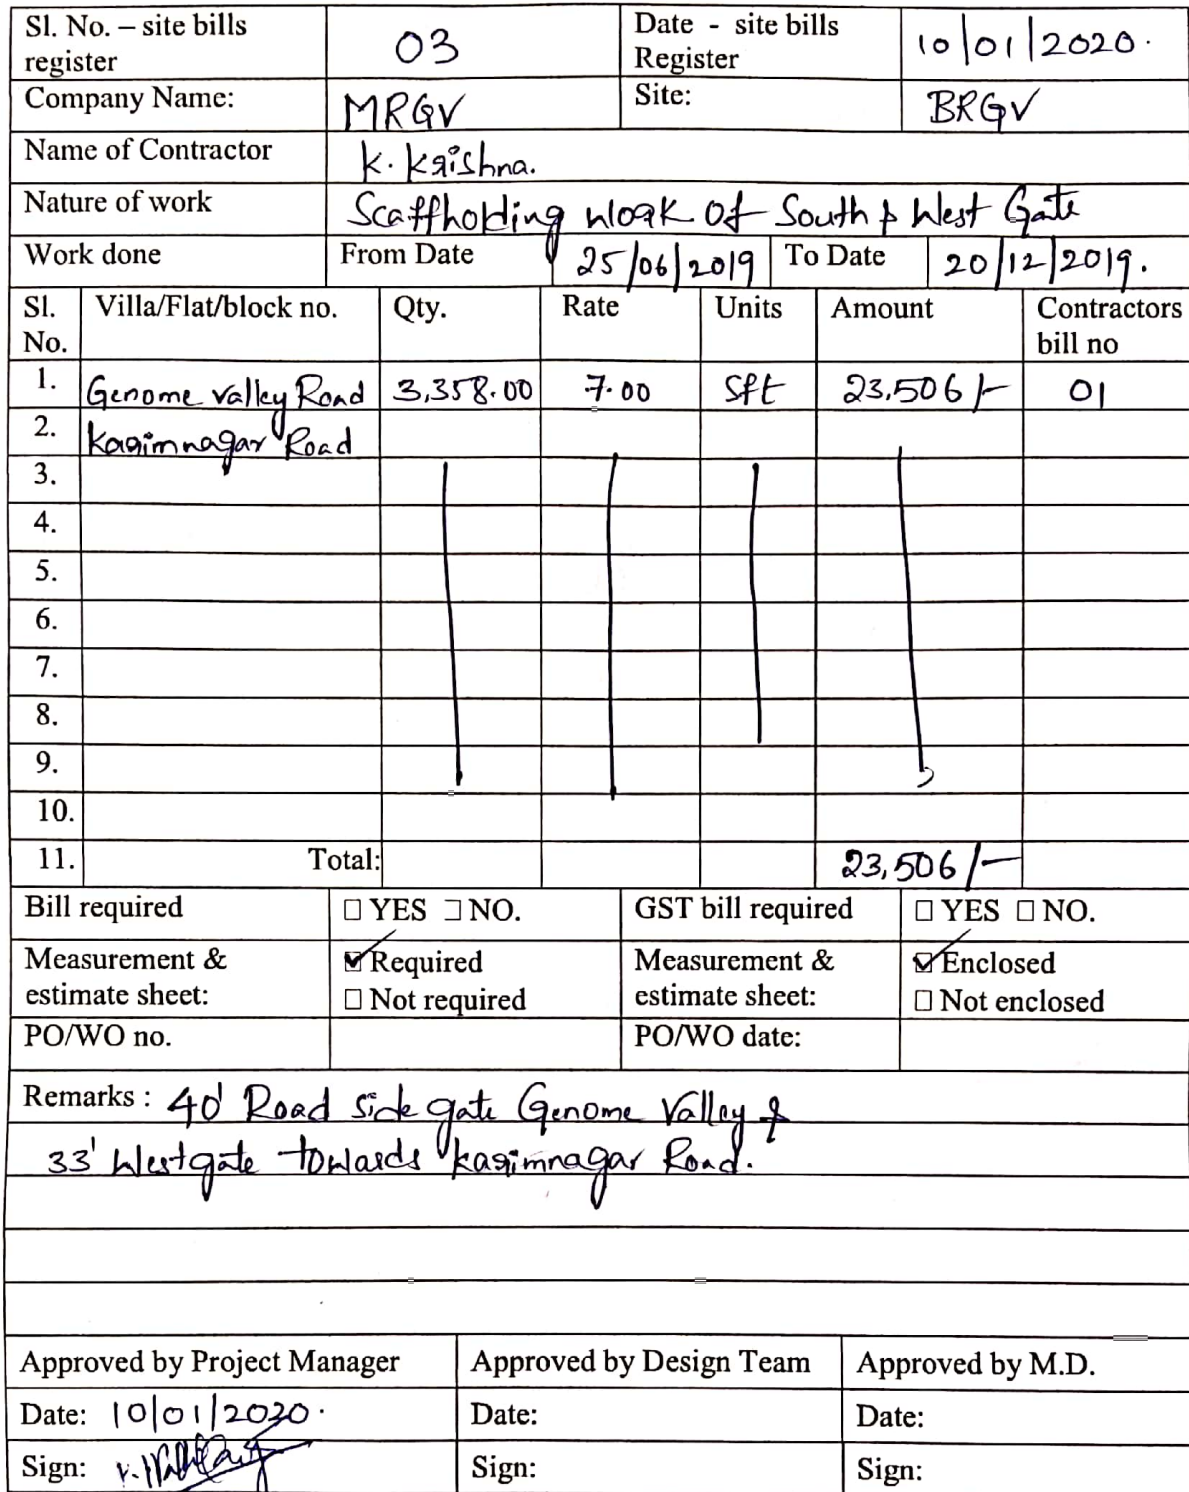 Sl. No. – site bills register 03 Date - site bills Register 10/01/2020.
Company Name: MRGV Site: BRGV
Name of Contractor K. Krishna.
Nature of work Scaffholding work of South & West Gate
Work done From Date 25/06/2019 To Date 20/12/2019.
Sl. No. Villa/Flat/block no. Qty. Rate Units Amount Contractors bill no
1. Genome valley Road 3,358.00 7.00 Sft 23,506/- 01
2. Karimnagar Road
3.
4.
5.
6.
7.
8.
9.
10.
11. Total: 23,506/-
Bill required ☐ YES ☐ NO. GST bill required ☐ YES ☐ NO.
Measurement & estimate sheet: ☑ Required ☐ Not required Measurement & estimate sheet: ☑ Enclosed ☐ Not enclosed
PO/WO no. PO/WO date:
Remarks : 40' Road side gate Genome Valley &
33' Westgate towards karimnagar Road.
Approved by Project Manager Approved by Design Team Approved by M.D.
Date: 10/01/2020. Date: Date:
Sign: Sign: Sign: